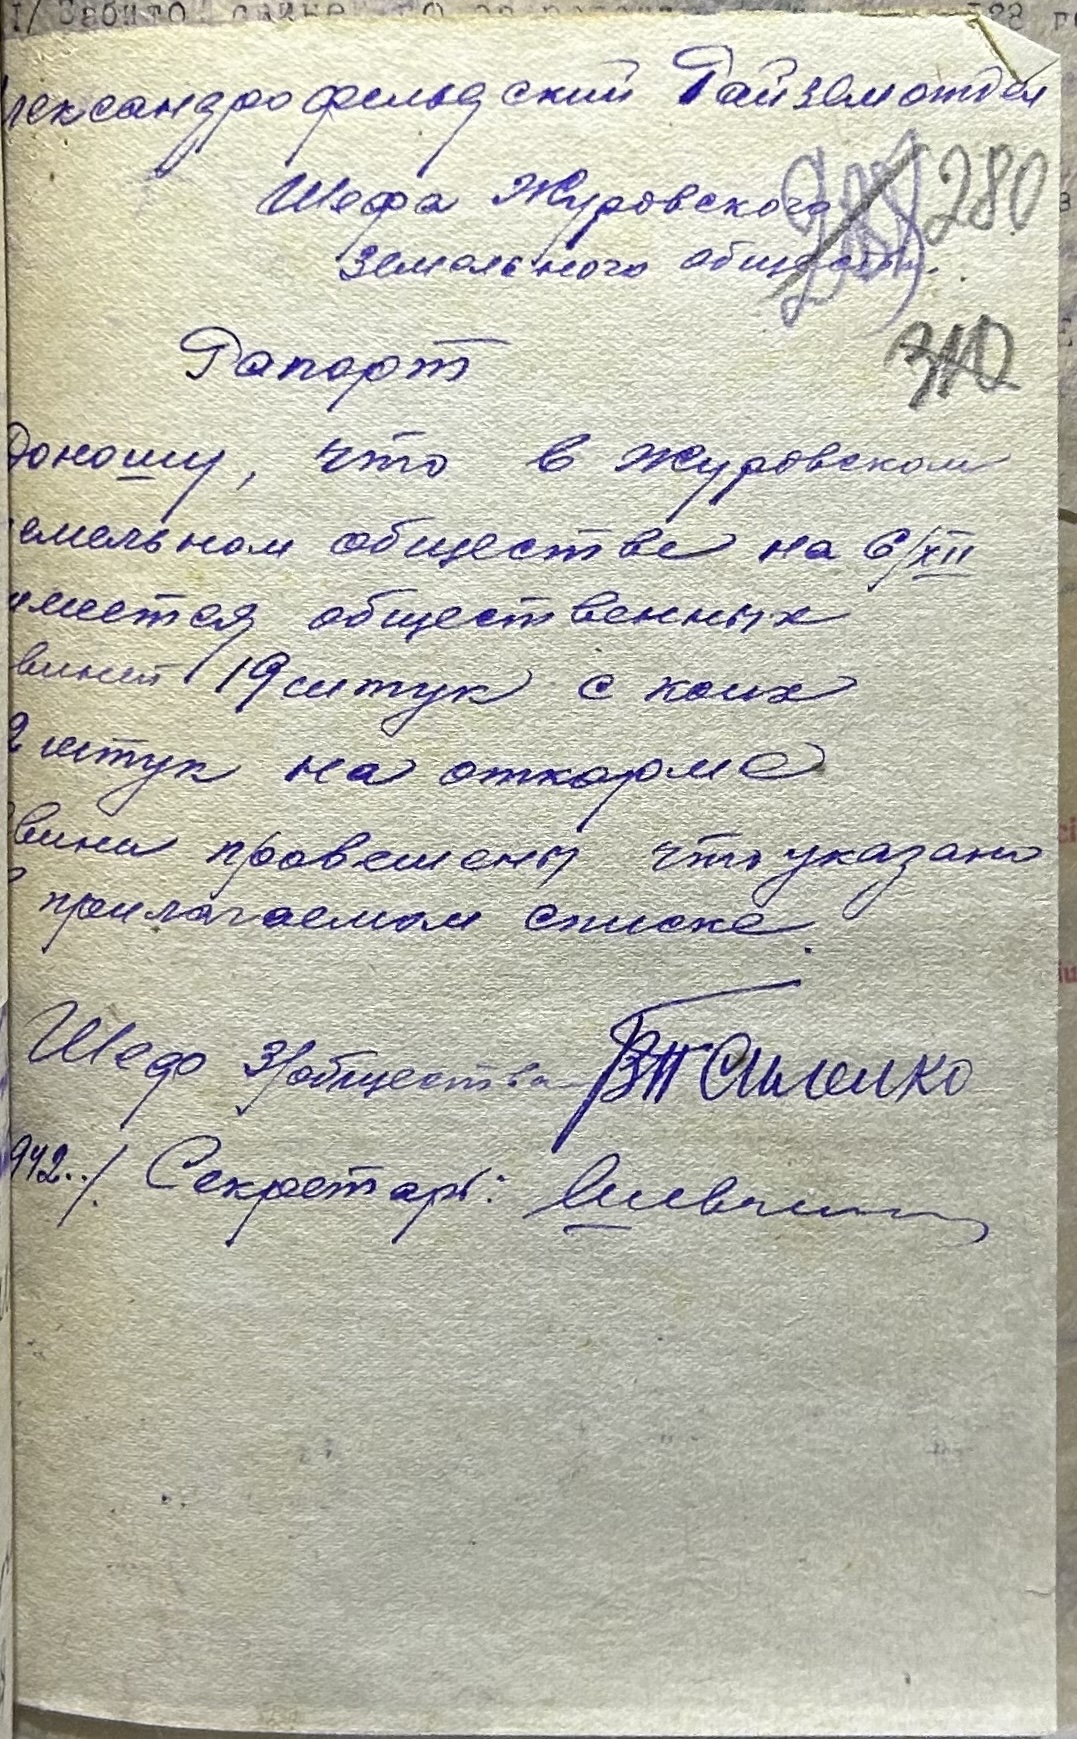 1/ Забито свиней
лександрофельдский Райземотдел
Шефа Журовского 280
земельного общества.
Рапорт
Доношу, что в Журовском
емельном обществе на 6/XII
имеется общественных
виней 19 штук с коих
2 штук на откорме
свини провешены что указано
в прилагаемом списке.
Шеф З/общества
942../. Секретарь: